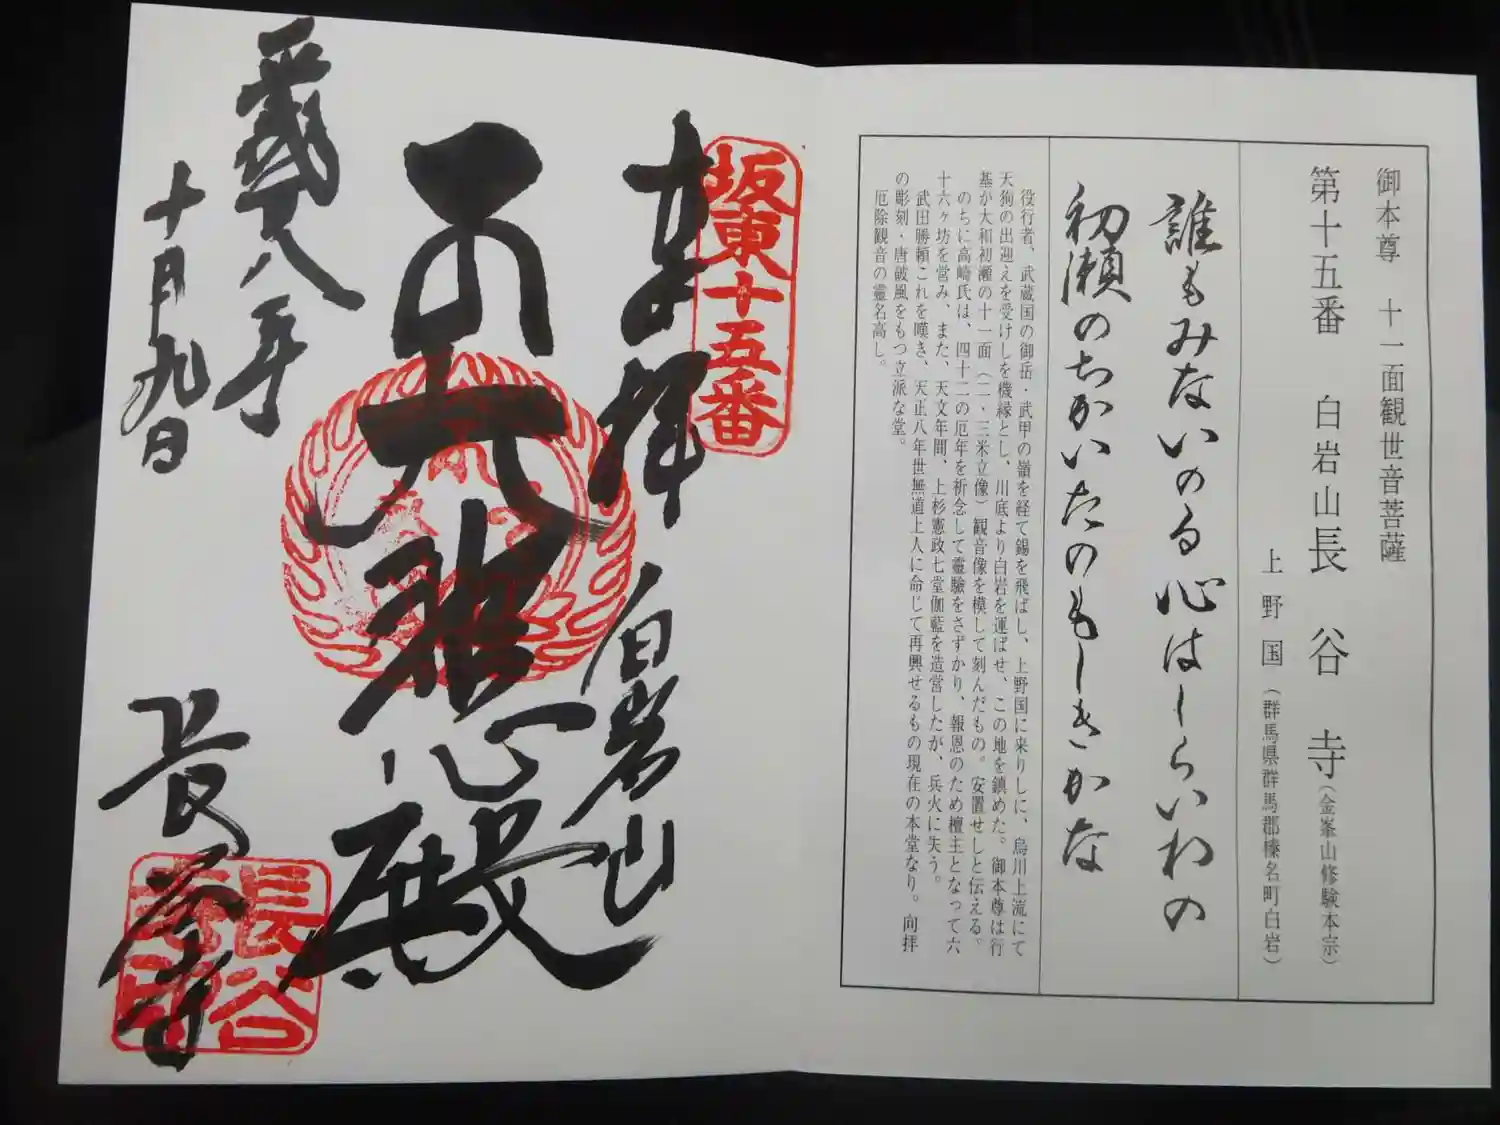 御本尊 十一面観世音菩薩
第十五番 白岩山長谷寺(金峯山修験本宗)
上野国(群馬県群馬郡榛名町白岩)
誰もみないのる心はしらいわの
初瀬のちかいたのもしきかな
役行者、武蔵国の御岳・武甲の嶺を経て錫を飛ばし、上野国に来りしに、烏川上流にて
天狗の出迎えを受けしを機縁とし、川底より白岩を運ばせ、この地を鎮めた。御本尊は行
基が大和初瀬の十一面(二・三米立像)観音像を模して刻んだもの。安置せしと伝える。
のちに高崎氏は、四十二の厄年を祈念して霊験をさずかり、報恩のため檀主となって六
十六ヶ坊を営み、また、天文年間、上杉憲政七堂伽藍を造営したが、兵火に失う。
武田勝頼これを嘆き、天正八年世無道上人に命じて再興せるもの現在の本堂なり。向拝
の彫刻・唐破風をもつ立派な堂。
厄除観音の霊名高し。
坂東十五番
奉拝 白岩山
大悲殿
平成廿八年
十月九日
長谷寺
長谷寺印